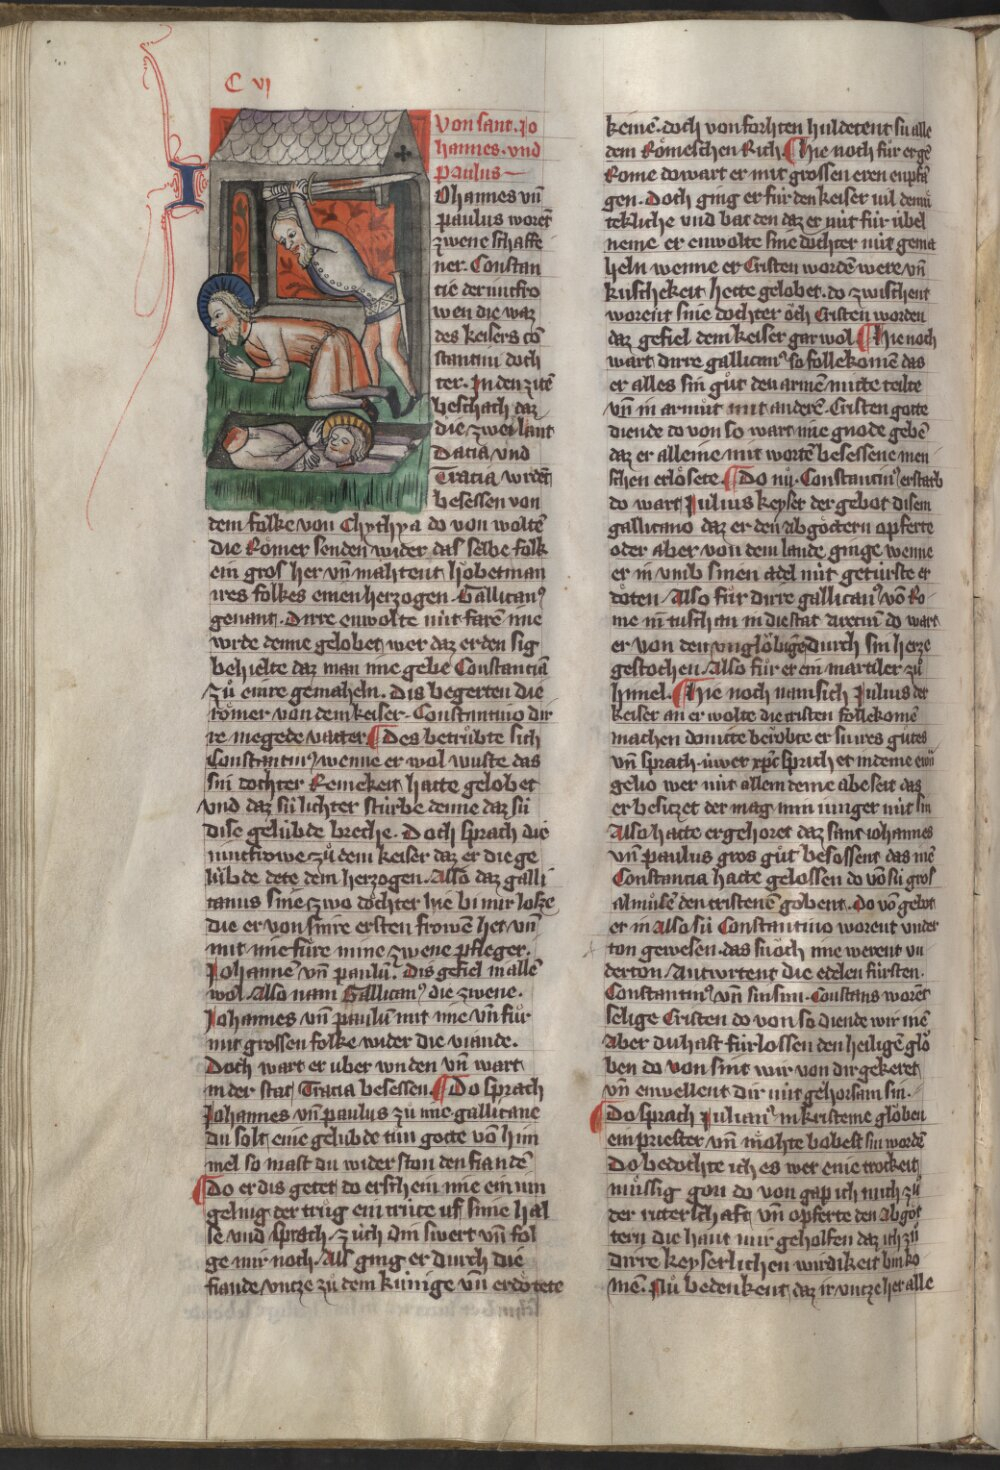 C vj
Von sant Jo
hannes vnd
paulus
Johannes vn̄
paulus worēt
zwene schaffe
ner. Constan
tie der iuncfro
wen die waz
des keisers cō
stantini doch
ter. In den zitē
beschach daz
die zwei lant
Dacia vnd
Tracia wrdēt
besessen von
dem folke von Chychya do von woltē
die Roͤmer senden wider das selbe folk
ein gros her vn̄ mahtent hoͤbetman
ires folkes einen herzogen. Gallicanꝰ
genant. Dirre enwolte nut farē ime
wrde denne gelobet wer daz er den sig
behielte daz man ime gebe Constanciā
zuͦ einre gemaheln. Dis begerten die
roͤmer von dem keiser. Constantino dir
re megede vatter. Des betruͤbte sich
Constantinꝰ wenne er wol wuste das
sin dochter kenekeit hatte gelobet
vnd daz sú lichter stúrbe denne daz sú
dise gelúbde breche. Doch sprach die
iuncfrowe zuͦ dem keiser daz er die ge
lúbde dete dem herzogen. Also daz galli
canus sine zwo doͤchter hie bi mir losze
die er von sinre ersten frowen het vn̄
mit ime fuͤre mine zwene pfleger.
Johannē vn̄ paulū. Dis gefiel in allē
wol. Also nam Gallicanꝰ die zwene.
Johannes vn̄ paulū mit ime vn̄ fuͦr
mit grossen folke wider die viande.
Doch wart er uber wnden vn̄ wart
in der stat Tracia besessen. Do sprach
Johannes vn̄ paulus zuͦ ime gallicane
du solt eine gelubde tuͦn gotte vō him
mel so maht du wider ston den fiandē
Do er dis getet do erschein ime ein iun
geling der truͦg ein crúce uf sime hal
se vnd sprach zúch din swert vn̄ fol
ge mir noch. Als ging er durch die
fiande vntze zuͦ dem kúnige vn̄ erdoͤtete
keinē. doch von forhten huldetent sú alle
dem Roͤmeschen Rich. Hie noch fuͦr er gē
Rome do wart er mit grossen eren enpfā
gen. Doch ging er fúr den keiser vil demuͤ
tekliche vnd bat den daz er nút fúr úbel
neme er enwolte sine dochter nút gema
heln wenne er Cristen wordē were vn̄
kúschekeit hette gelobet. do zwischent
worent sine dochter oͧch Cristen worden
daz gefiel dem keiser gar wol. Hie noch
wart dirre gallicanꝰ so follekomē das
er alles sin guͦt den armē mitte teilte
vn̄ in armuͦt mit anderē. Cristen gotte
diende do von so wart ime gnode gebē
daz er alleine mit wortē besessene men
schen erloͤsete. Do nuͦ. Constantinꝰ erstarb
do wart Julius keyser der gebot disem
gallicano daz er den abgoͤttern opferte
oder aber von dem lande ginge wenne
er in vmb sinen adel nút getúrste er
doͤten. Also fuͦr dirre gallicanꝰ vō Ro
me in tuschan in die stat do wart
er von den vngloͤbigē durch sin herze
gestochen. Also fuͦr er ein martiler zuͦ
himel. Hie noch nam sich Julius der
keiser an er wolte die cristen follekomē
machen do mitte beroͧbte er sú ires guͦtes
vn̄ sprach. úwer xp̄c sprichet in deme ewā
gelio wer nút allem deme abeseit das
er besitzet der mag min iunger nút sin
Also hatte er gehoret daz sant iohannes
vn̄ paulus gros guͦt besossent das inē
Constancia hatte gelossen do vō sú gros
almuͤsē den cristenē gobent. Do vō gebot
er in Also sú Constantino worent vnder
ton gewesen. das sú oͧch ime werent vn
derton. Antwrtent die edelen fúrsten.
Constantinꝰ vn̄ sin sun. Constans worēt
selige Cristen do von so diende wir inē
Aber du hast fúrlossen den heiligē gloͧ
ben do von sint wir von dir gekeret
vn̄ enwellent dir nút gehorsam sin.
Do sprach Julianꝰ in kristeme gloͧben
ein priester vn̄ moͤhte bobest sin wordē
Do bedochte ich es wer eine trockeit
muͤssig gon do von gap ich mich zuͦ
der ritterschaft vn̄ opferte den abgoͤt
tern die hant mir geholfen daz ich zuͦ
dirre keyserlichen wirdikeit bin ko
mē. Nuͦ bedenkent daz ir vntze her alle